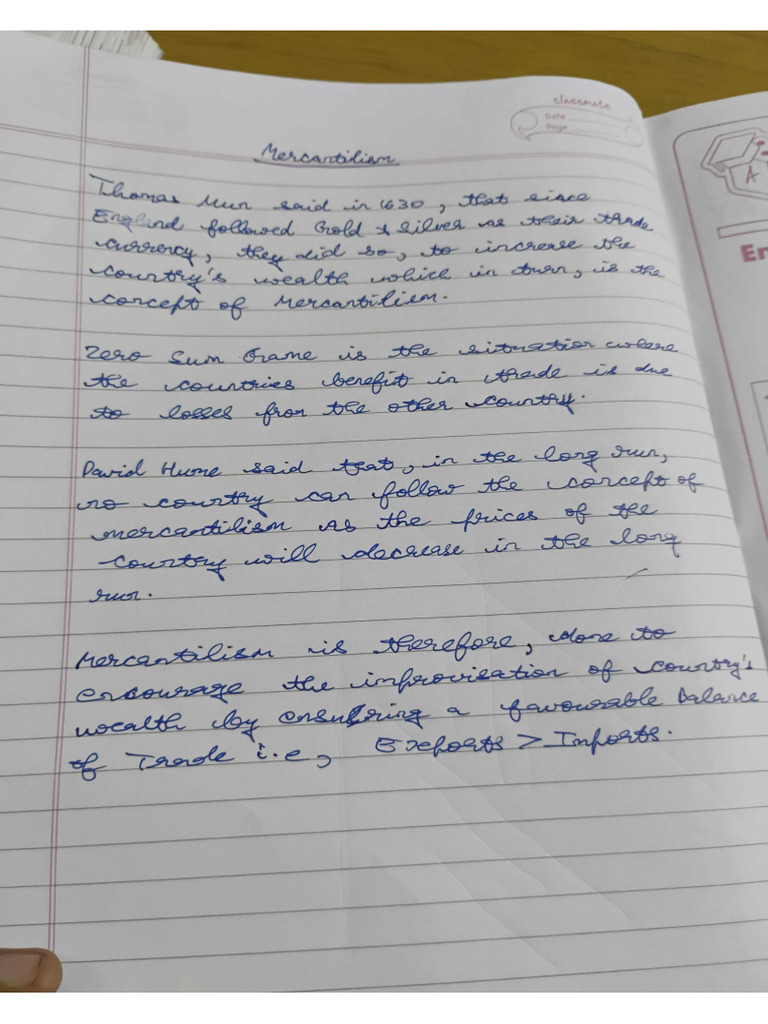 classmate
Date
Page
Mercantilism
Thomas Mun said in 1630, that since
England followed Gold & Silver as their trade
currency, they did so, to increase the
country's wealth which in turn, is the
concept of Mercantilism.
Zero Sum Game is the situation where
the countries benefit in trade is due
to losses from the other country.
David Hume said that, in the long run,
no country can follow the concept of
mercantilism as the prices of the
country will decrease in the long
run.
Mercantilism is therefore, done to
encourage the improvisation of country's
wealth by ensuring a favourable Balance
of Trade i.e, Exports > Imports.
A
En